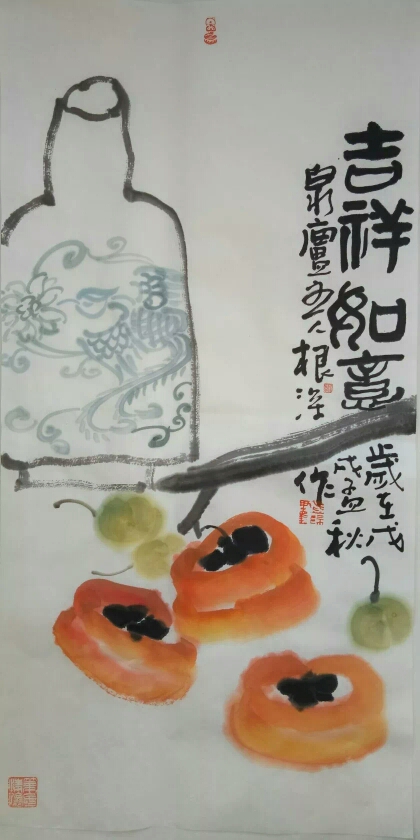 吉祥如意
歲在戊
戌孟秋
泉廬主人根深
作